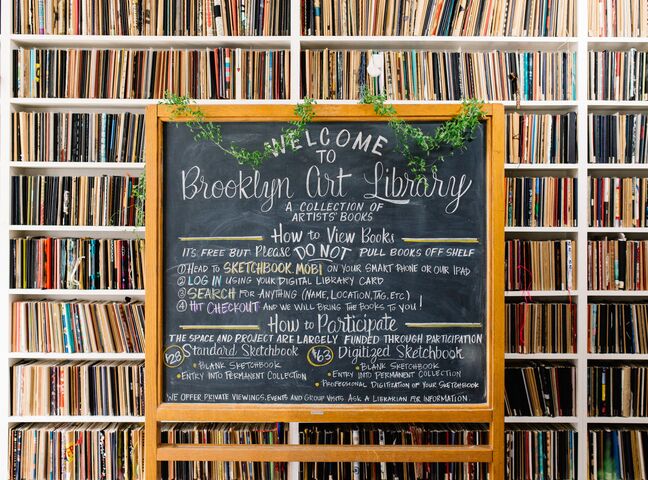 WELCOME
TO
Brooklyn Art Library
A COLLECTION OF
ARTISTS' BOOKS
How to View Books
IT'S FREE BUT Please DO NOT PULL BOOKS OFF SHELF
① HEAD TO SKETCHBOOK.MOBI ON YOUR SMART PHONE OR OUR IPAD
② LOG IN USING YOUR DIGITAL LIBRARY CARD
③ SEARCH FOR ANYTHING (NAME, LOCATION, TAG, ETC.)
④ HIT CHECKOUT AND WE WILL BRING THE BOOKS TO YOU!
How to Participate
THE SPACE AND PROJECT ARE LARGELY FUNDED THROUGH PARTICIPATION
$28 Standard Sketchbook
• BLANK SKETCHBOOK
• ENTRY INTO PERMANENT COLLECTION
$63 Digitized Sketchbook
• BLANK SKETCHBOOK
• ENTRY INTO PERMANENT COLLECTION
• PROFESSIONAL DIGITIZATION OF YOUR SKETCHBOOK
WE OFFER PRIVATE VIEWINGS, EVENTS AND GROUP VISITS. ASK A LIBRARIAN FOR INFORMATION.